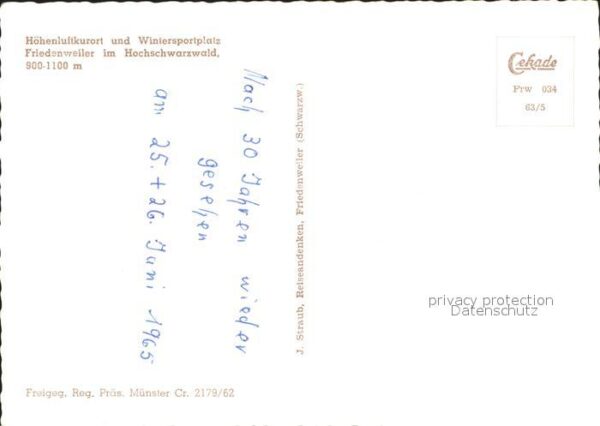 Höhenluftkurort und Wintersportplatz
Friedenweiler im Hochschwarzwald,
900-1100 m
Cekade
Frw 034
63/5
Nach 30 Jahren wieder
gesehen
am 25. + 26. Juni 1965
J. Straub, Reiseandenken, Friedenweiler (Schwarzw.)
privacy protection
Datenschutz
Freigeg. Reg. Präs. Münster Cr. 2179/62